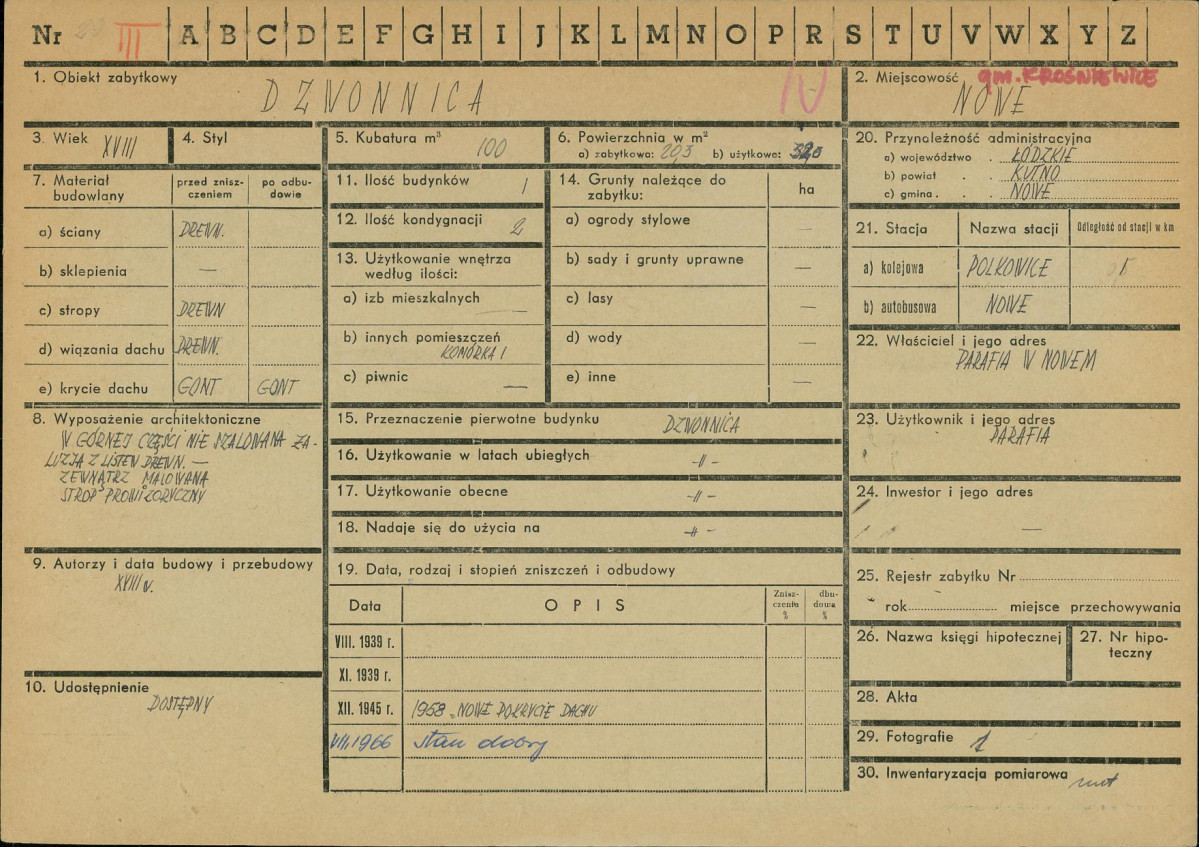 Nr III A B C D E F G H I J K L M N O P R S T U V W X Y Z
1. Obiekt zabytkowy
DZWONNICA
IV
2. Miejscowość gm. KROŚNIEWICE
NOWE
3. Wiek XVIII
4. Styl
5. Kubatura m³ 100
6. Powierzchnia w m²
a) zabytkowa: 29,3 b) użytkowe:
7. Materiał budowlany
przed zniszczeniem
po odbudowie
a) ściany DREWN.
b) sklepienia —
c) stropy DREWN
d) wiązania dachu DREWN.
e) krycie dachu GONT GONT
8. Wyposażenie architektoniczne
W GÓRNEJ CZĘŚCI NIE SZALOWANA ŻA-
LUZJA Z LISTEW DREWN. —
ZEWNĄTRZ MALOWANA
STROP PROWIZORYCZNY
9. Autorzy i data budowy i przebudowy
XVIII w.
10. Udostępnienie
DOSTĘPNY
11. Ilość budynków 1
12. Ilość kondygnacji 2
13. Użytkowanie wnętrza
według ilości:
a) izb mieszkalnych —
b) innych pomieszczeń
KOMÓRKA 1
c) piwnic —
14. Grunty należące do
zabytku:
ha
a) ogrody stylowe —
b) sady i grunty uprawne —
c) lasy —
d) wody —
e) inne —
15. Przeznaczenie pierwotne budynku DZWONNICA
16. Użytkowanie w latach ubiegłych -"-
17. Użytkowanie obecne -"-
18. Nadaje się do użycia na -"-
19. Data, rodzaj i stopień zniszczeń i odbudowy
Data
OPIS
Zniszczenia %
dbudowa %
VIII. 1939 r.
XI. 1939 r.
XII. 1945 r. 1958 NOWE POKRYCIE DACHU
VIII.1966 stan dobry
20. Przynależność administracyjna
a) województwo . ŁÓDZKIE
b) powiat . . KUTNO
c) gmina . . NOWE
21. Stacja
Nazwa stacji
Odległość od stacji w km
a) kolejowa POLKOWICE
b) autobusowa NOWE
22. Właściciel i jego adres
PARAFIA W NOWEM
23. Użytkownik i jego adres
PARAFIA
24. Inwestor i jego adres
—
25. Rejestr zabytku Nr
rok miejsce przechowywania
26. Nazwa księgi hipotecznej
27. Nr hipo-
teczny
28. Akta
29. Fotografie 1
30. Inwentaryzacja pomiarowa